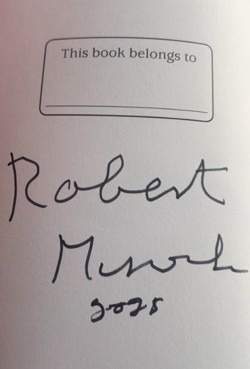 This book belongs to
Robert
Munsch
2025